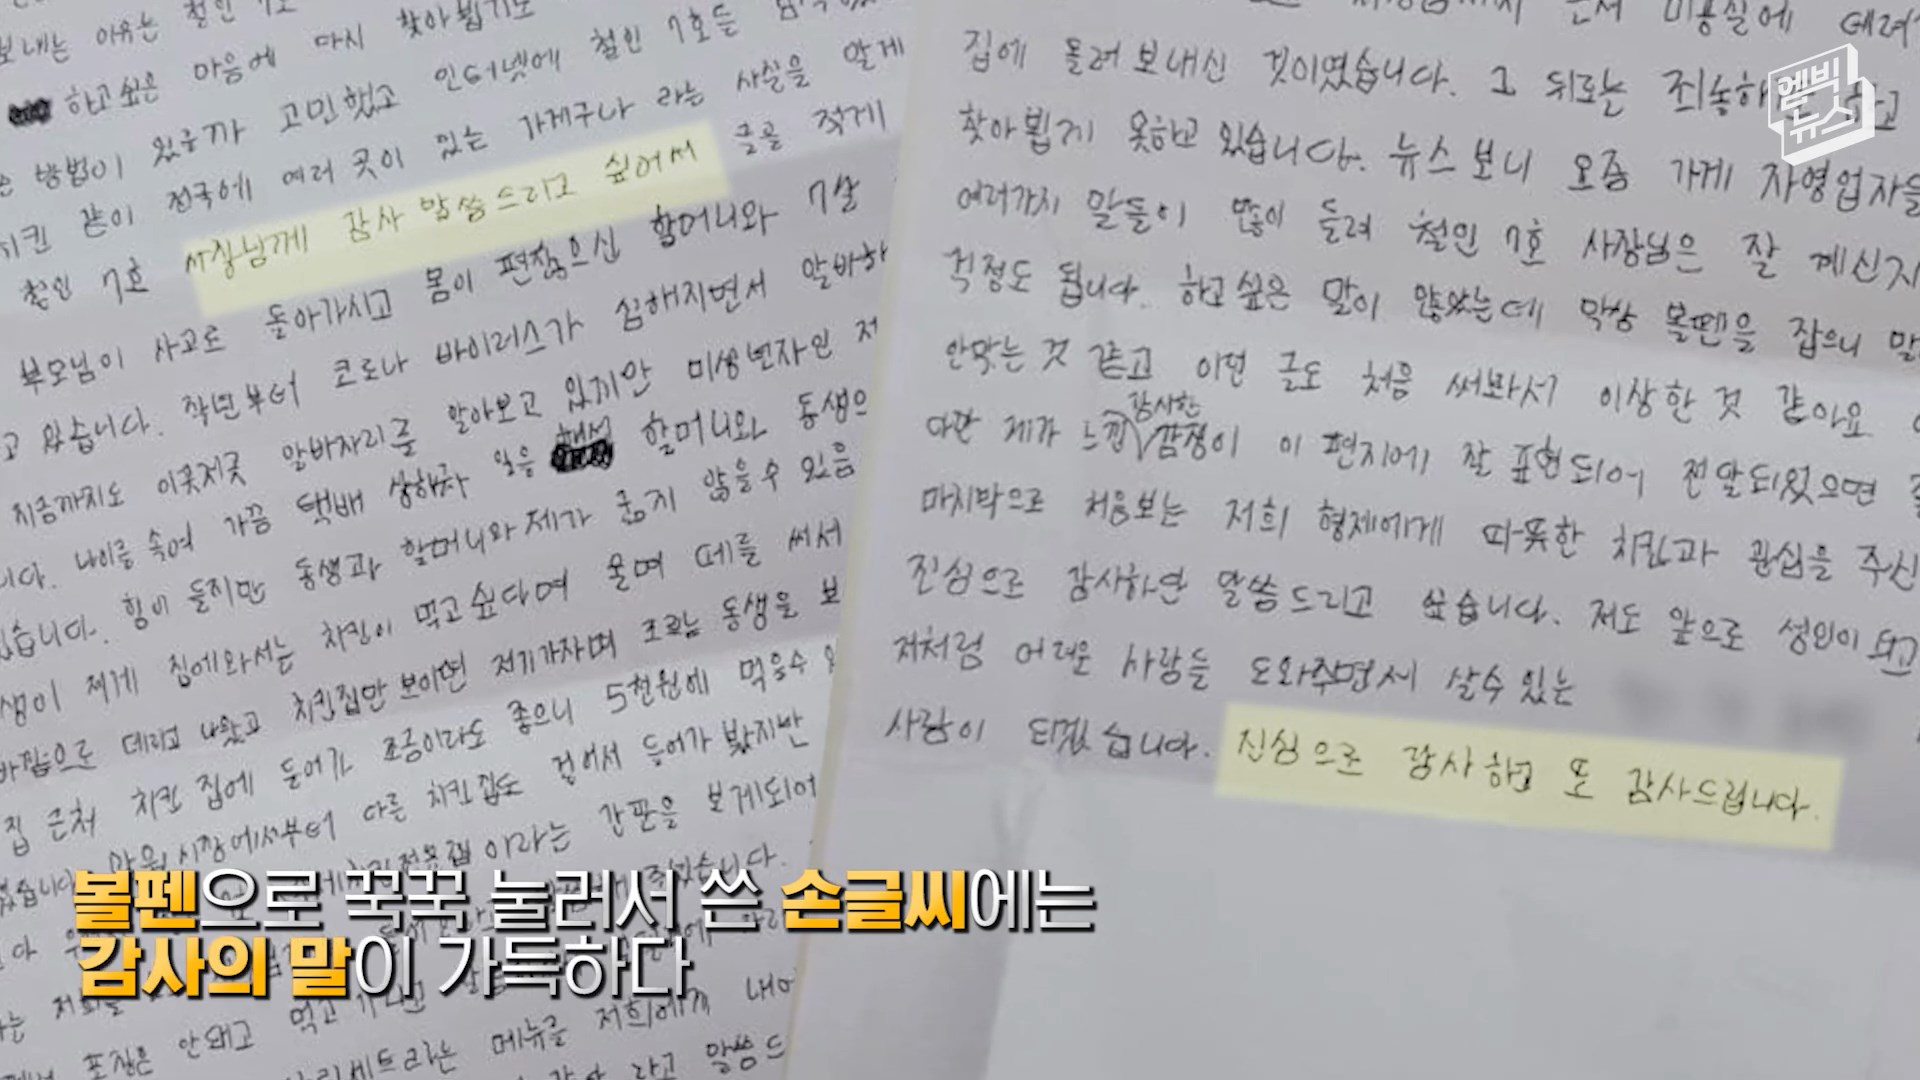 보내는 이유는 철인 7호
하고싶은 마음에 다시 찾아뵙기도
방법이 있을까 고민했고 인터넷에 철인 7호를
치킨 같이 전국에 여러 곳이 있는 가게구나 라는 사실을 알게
철인 7호 사장님께 감사 말씀드리고 싶어서 글을 적게
부모님이 사고로 돌아가시고 몸이 편찮으신 할머니와 7살
고 있습니다. 작년부터 코로나 바이러스가 심해지면서 알바하
지금까지도 이곳저곳 알바자리를 알아보고 있지만 미성년자인 저
니다. 나이를 속여 가끔 택배 상하차 일을 해서 할머니와 동생의
있습니다. 힘이 들지만 동생과 할머니와 제가 굶지 않을수 있음
생이 제게 집에와서는 치킨이 먹고싶다며 울며 떼를 써서
바깥으로 데리고 나왔고 치킨집만 보이면 저기가자며 조르는 동생을 보
집 근처 치킨 집에 들어가 조금이라도 좋으니 5천원에 먹을수
망원시장에서부터 다른 치킨집도 걸어서 들어가 봤지만
이라는 간판을 보게되어
포장은 안돼고 먹고가라고
세트라는 메뉴를 저희에게 내어
라고 말씀드
근처 미용실에 데려
집에 돌려보내신 것이였습니다. 그 뒤로는 죄송하 하고
찾아뵙게 못하고 있습니다. 뉴스 보니 요즘 가게 자영업자들
여러가지 말들이 많이 들려 철인 7호 사장님은 잘 계신지
걱정도 됩니다. 하고싶은 말이 많았는데 막상 볼펜을 잡으니 말
안맞는 것 같고 이런 글도 처음 써봐서 이상한 것 같아요
다만 제가 느낀 감사한 감정이 이 편지에 잘 표현되어 전달되었으면
마지막으로 처음보는 저희 형제에게 따뜻한 치킨과 관심을 주신
진심으로 감사하단 말씀드리고 싶습니다. 저도 앞으로 성인이 되고
저처럼 어려운 사람들 도와주면서 살수 있는
사람이 되겠습니다. 진심으로 감사하고 또 감사드립니다.
엠빅
뉴스
볼펜으로 꾹꾹 눌러서 쓴 손글씨에는
감사의 말이 가득하다